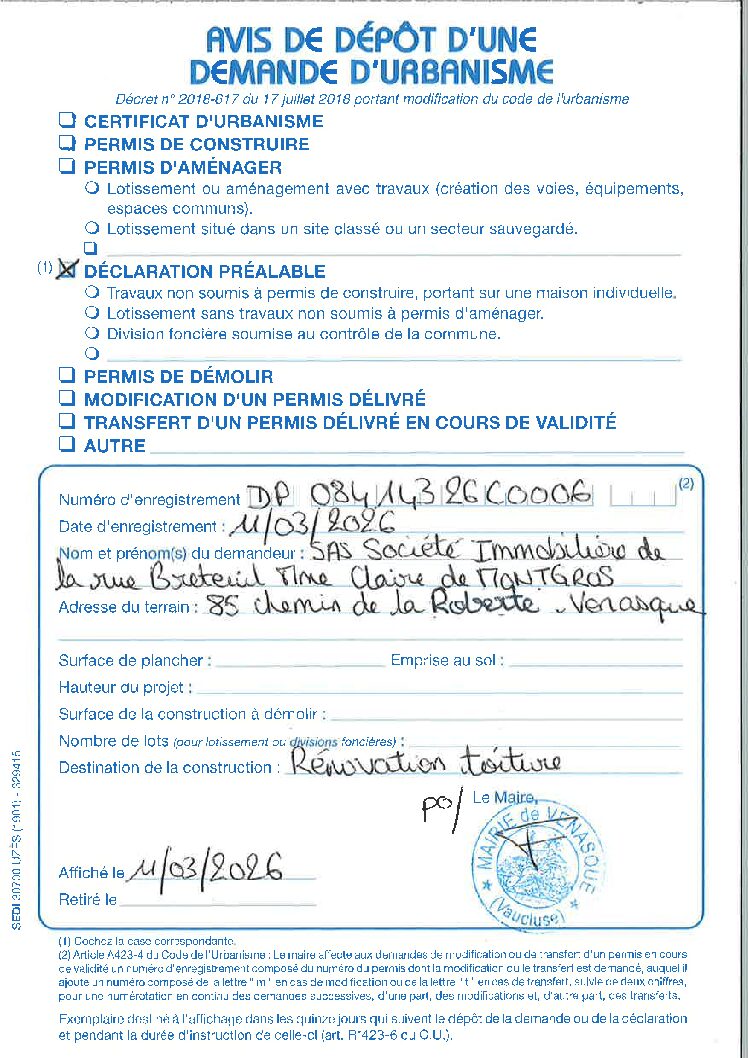 AVIS DE DÉPÔT D'UNE
DEMANDE D'URBANISME
Décret n° 2018-617 du 17 juillet 2018 portant modification du code de l'urbanisme
CERTIFICAT D'URBANISME
PERMIS DE CONSTRUIRE
PERMIS D'AMÉNAGER
Lotissement ou aménagement avec travaux (création des voies, équipements,
espaces communs).
Lotissement situé dans un site classé ou un secteur sauvegardé.
(1) DÉCLARATION PRÉALABLE
Travaux non soumis à permis de construire, portant sur une maison individuelle.
Lotissement sans travaux non soumis à permis d'aménager.
Division foncière soumise au contrôle de la commune.
PERMIS DE DÉMOLIR
MODIFICATION D'UN PERMIS DÉLIVRÉ
TRANSFERT D'UN PERMIS DÉLIVRÉ EN COURS DE VALIDITÉ
AUTRE
Numéro d'enregistrement DP 084 143 26 C0006 (2)
Date d'enregistrement : 11/03/2026
Nom et prénom(s) du demandeur : SAS Société Immobilière de
la rue Breteuil Mme Claire de MONTGROS
Adresse du terrain : 85 chemin de la Roberte - Venasque
Surface de plancher : Emprise au sol :
Hauteur du projet :
Surface de la construction à démolir :
Nombre de lots (pour lotissement ou divisions foncières) :
Destination de la construction : Rénovation toiture
po/ Le Maire,
MAIRIE de VENASQUE
(Vaucluse)
Affiché le 11/03/2026
Retiré le
SEDI 30700 UZÈS (1901) - 329415
(1) Cochez la case correspondante.
(2) Article A423-4 du Code de l'Urbanisme : Le maire affecte aux demandes de modification ou de transfert d'un permis en cours
de validité un numéro d'enregistrement composé du numéro du permis dont la modification ou le transfert est demandé, auquel il
ajoute un numéro composé de la lettre "m" en cas de modification ou de la lettre "t" en cas de transfert, suivie de deux chiffres,
pour une numérotation en continu des demandes successives, d'une part, des modifications et, d'autre part, des transferts.
Exemplaire destiné à l'affichage dans les quinze jours qui suivent le dépôt de la demande ou de la déclaration
et pendant la durée d'instruction de celle-ci (art. R*423-6 du C.U.).